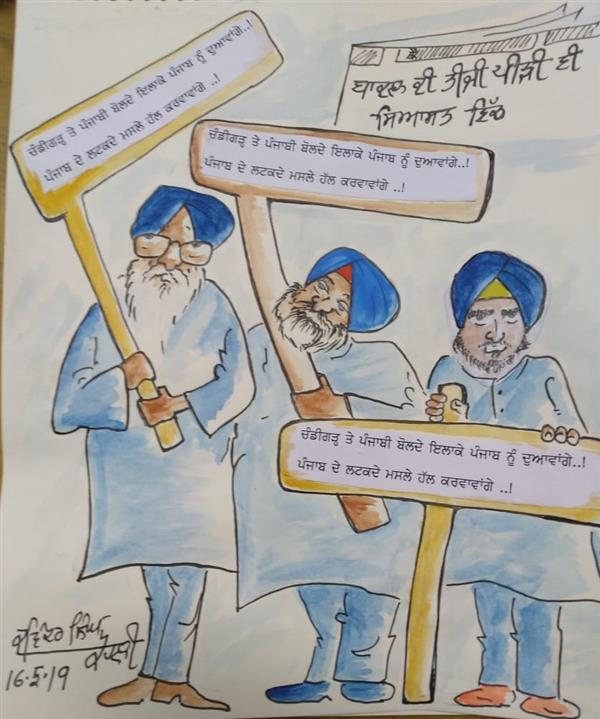 ਬਾਦਲ ਦੀ ਤੀਜੀ ਪੀੜੀ ਵੀ
ਸਿਆਸਤ ਵਿੱਚ
ਚੰਡੀਗੜ੍ਹ ਤੇ ਪੰਜਾਬੀ ਬੋਲਦੇ ਇਲਾਕੇ ਪੰਜਾਬ ਨੂੰ ਦੁਆਵਾਂਗੇ..!
ਪੰਜਾਬ ਦੇ ਲਟਕਦੇ ਮਸਲੇ ਹੱਲ ਕਰਵਾਵਾਂਗੇ ..!
ਚੰਡੀਗੜ੍ਹ ਤੇ ਪੰਜਾਬੀ ਬੋਲਦੇ ਇਲਾਕੇ ਪੰਜਾਬ ਨੂੰ ਦੁਆਵਾਂਗੇ..!
ਪੰਜਾਬ ਦੇ ਲਟਕਦੇ ਮਸਲੇ ਹੱਲ ਕਰਵਾਵਾਂਗੇ ..!
ਚੰਡੀਗੜ੍ਹ ਤੇ ਪੰਜਾਬੀ ਬੋਲਦੇ ਇਲਾਕੇ ਪੰਜਾਬ ਨੂੰ ਦੁਆਵਾਂਗੇ..!
ਪੰਜਾਬ ਦੇ ਲਟਕਦੇ ਮਸਲੇ ਹੱਲ ਕਰਵਾਵਾਂਗੇ ..!
ਸਿੰਘ
16.5.19